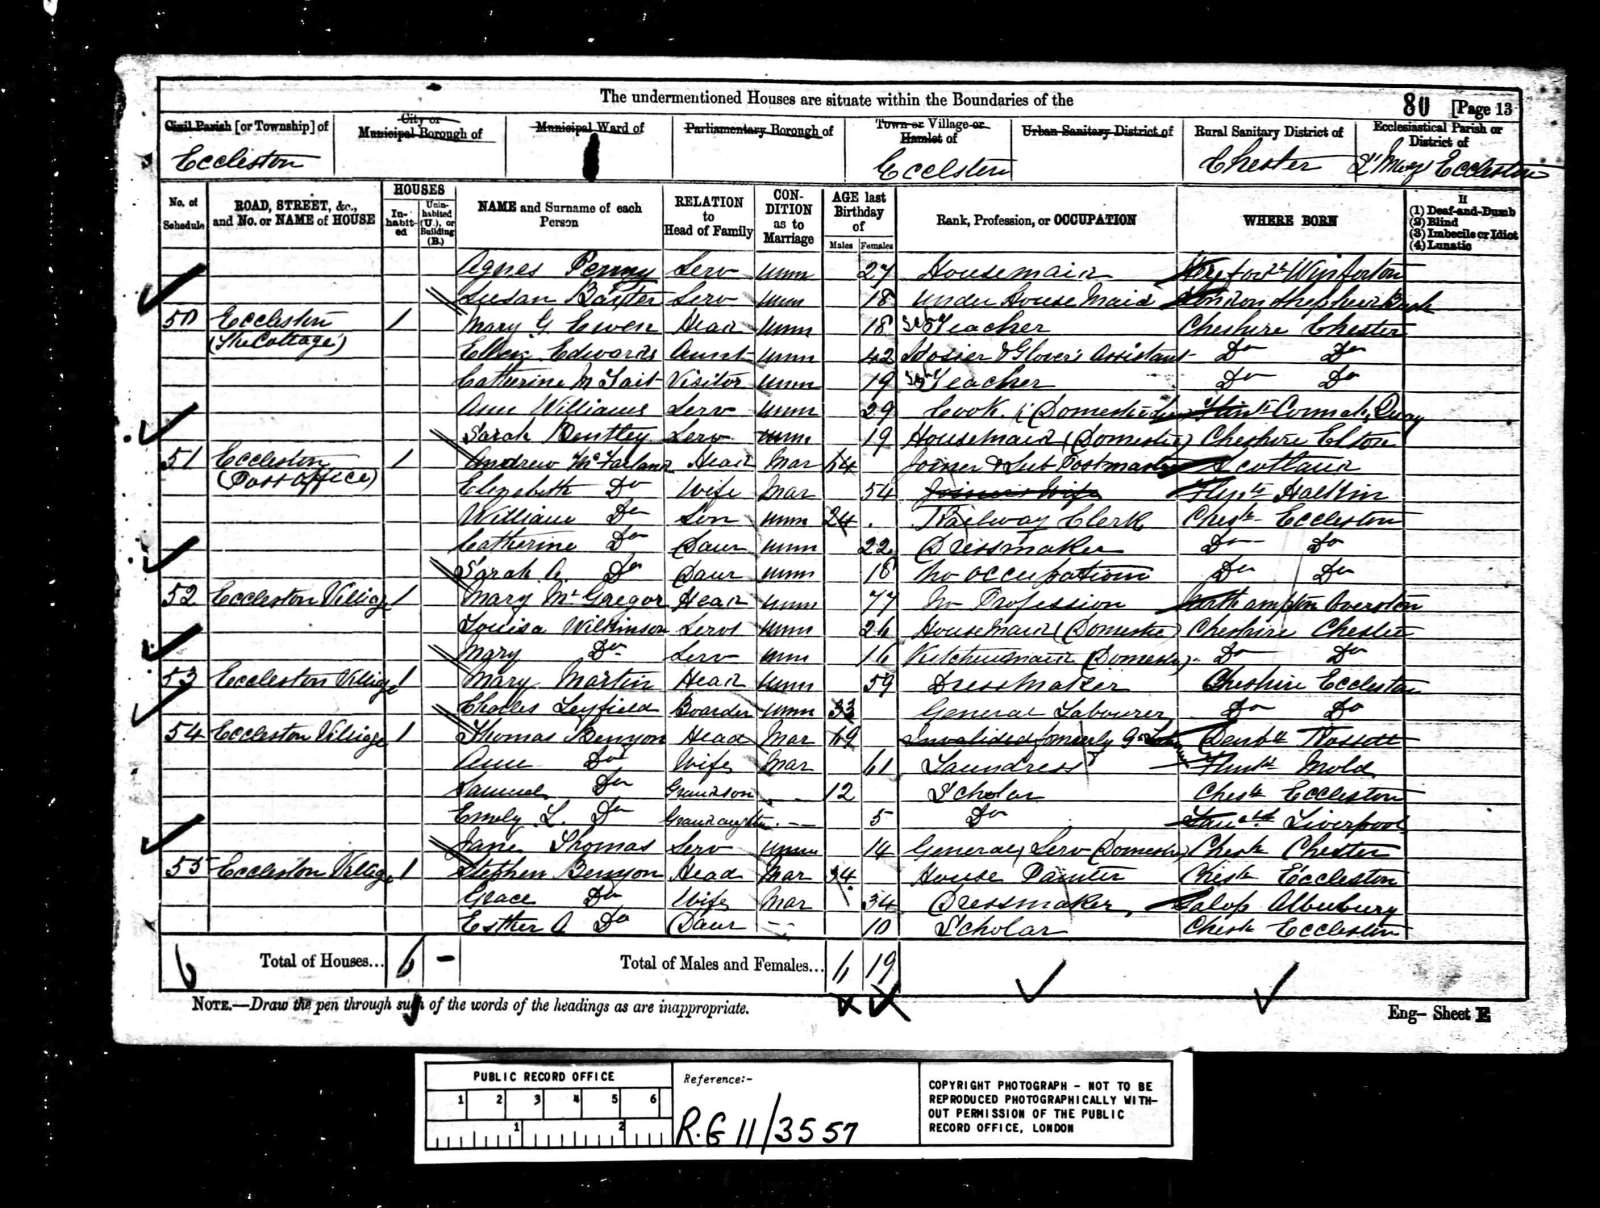 The undermentioned Houses are situate within the Boundaries of the
80 [Page 13
Civil Parish [or Township] of
City or Municipal Borough of
Municipal Ward of
Parliamentary Borough of
Town or Village or Hamlet of
Urban Sanitary District of
Rural Sanitary District of
Ecclesiastical Parish or District of
Eccleston
Eccleston
Chester
St Mary Eccleston
No. of Schedule
ROAD, STREET, &c., and No. or NAME of HOUSE
HOUSES
In-habit-ed
Unin-habited (U.), or Building (B.)
NAME and Surname of each Person
RELATION to Head of Family
CON-DITION as to Marriage
AGE last Birthday of
Males
Females
Rank, Profession, or OCCUPATION
WHERE BORN
If
(1) Deaf-and-Dumb
(2) Blind
(3) Imbecile or Idiot
(4) Lunatic
Agnes Penny Serv Unm 27 Housemaid Winforton
Susan Baxter Serv Unm 18 Under House Maid London
50 Eccleston 1 Mary G. Ewen Head Unm 18 Teacher Cheshire Chester
(The Cottage) Edwards Aunt Unm 42 Hosier & Glover's Assistant Do Do
Catherine M Tait Visitor Unm 19 Teacher Do Do
Ann Williams Serv Unm 29 Cook (Domestic Flint Connahs Quay
Sarah Bentley Serv Unm 19 Housemaid (Domestic) Cheshire Elton
51 Eccleston 1 Andrew McFarland Head Mar 64 Joiner & Sub Postmaster Scotland
(Post Office) Elizabeth Do Wife Mar 54 Joiner's Wife Halkin
William Do Son Unm 24 Railway Clerk Chesh Eccleston
Catherine Do Daur Unm 22 Dressmaker Do Do
Sarah A. Do Daur Unm 18 No occupation Do Do
52 Eccleston Village 1 Mary McGregor Head Unm 77 No Profession Northampton Overston
Louisa Wilkinson Servt Unm 26 House Maid (Domestic) Cheshire Chester
Mary Do Serv Unm 16 Kitchenmaid (Domestic) Do Do
53 Eccleston Village 1 Mary Martin Head Unm 59 Dressmaker Cheshire Eccleston
Charles Leyfield Boarder Unm 33 General Labourer Do Do
54 Eccleston Village 1 Thomas Benyon Head Mar 69 Invalided formerly Denbh Rossett
Ann Do Wife Mar 61 Laundress Flint Mold
Samuel Do Grandson 12 Scholar Chesh Eccleston
Emily L. Do Grandaughter 5 Do Lancsh Liverpool
Jane Thomas Serv Unm 14 General Serv (Domestic) Chesh Chester
55 Eccleston Village 1 Stephen Benyon Head Mar 34 House Painter Chesh Eccleston
Grace Do Wife Mar 34 Dressmaker Salop Alberbury
Esther A Do Daur 10 Scholar Chesh Eccleston
6 Total of Houses... 6 – Total of Males and Females... 6 19
NOTE.—Draw the pen through such of the words of the headings as are inappropriate.
Eng– Sheet E
PUBLIC RECORD OFFICE
1 2 3 4 5 6
1 2
Reference:-
R.G 11/3557
COPYRIGHT PHOTOGRAPH - NOT TO BE
REPRODUCED PHOTOGRAPHICALLY WITH-
OUT PERMISSION OF THE PUBLIC
RECORD OFFICE, LONDON